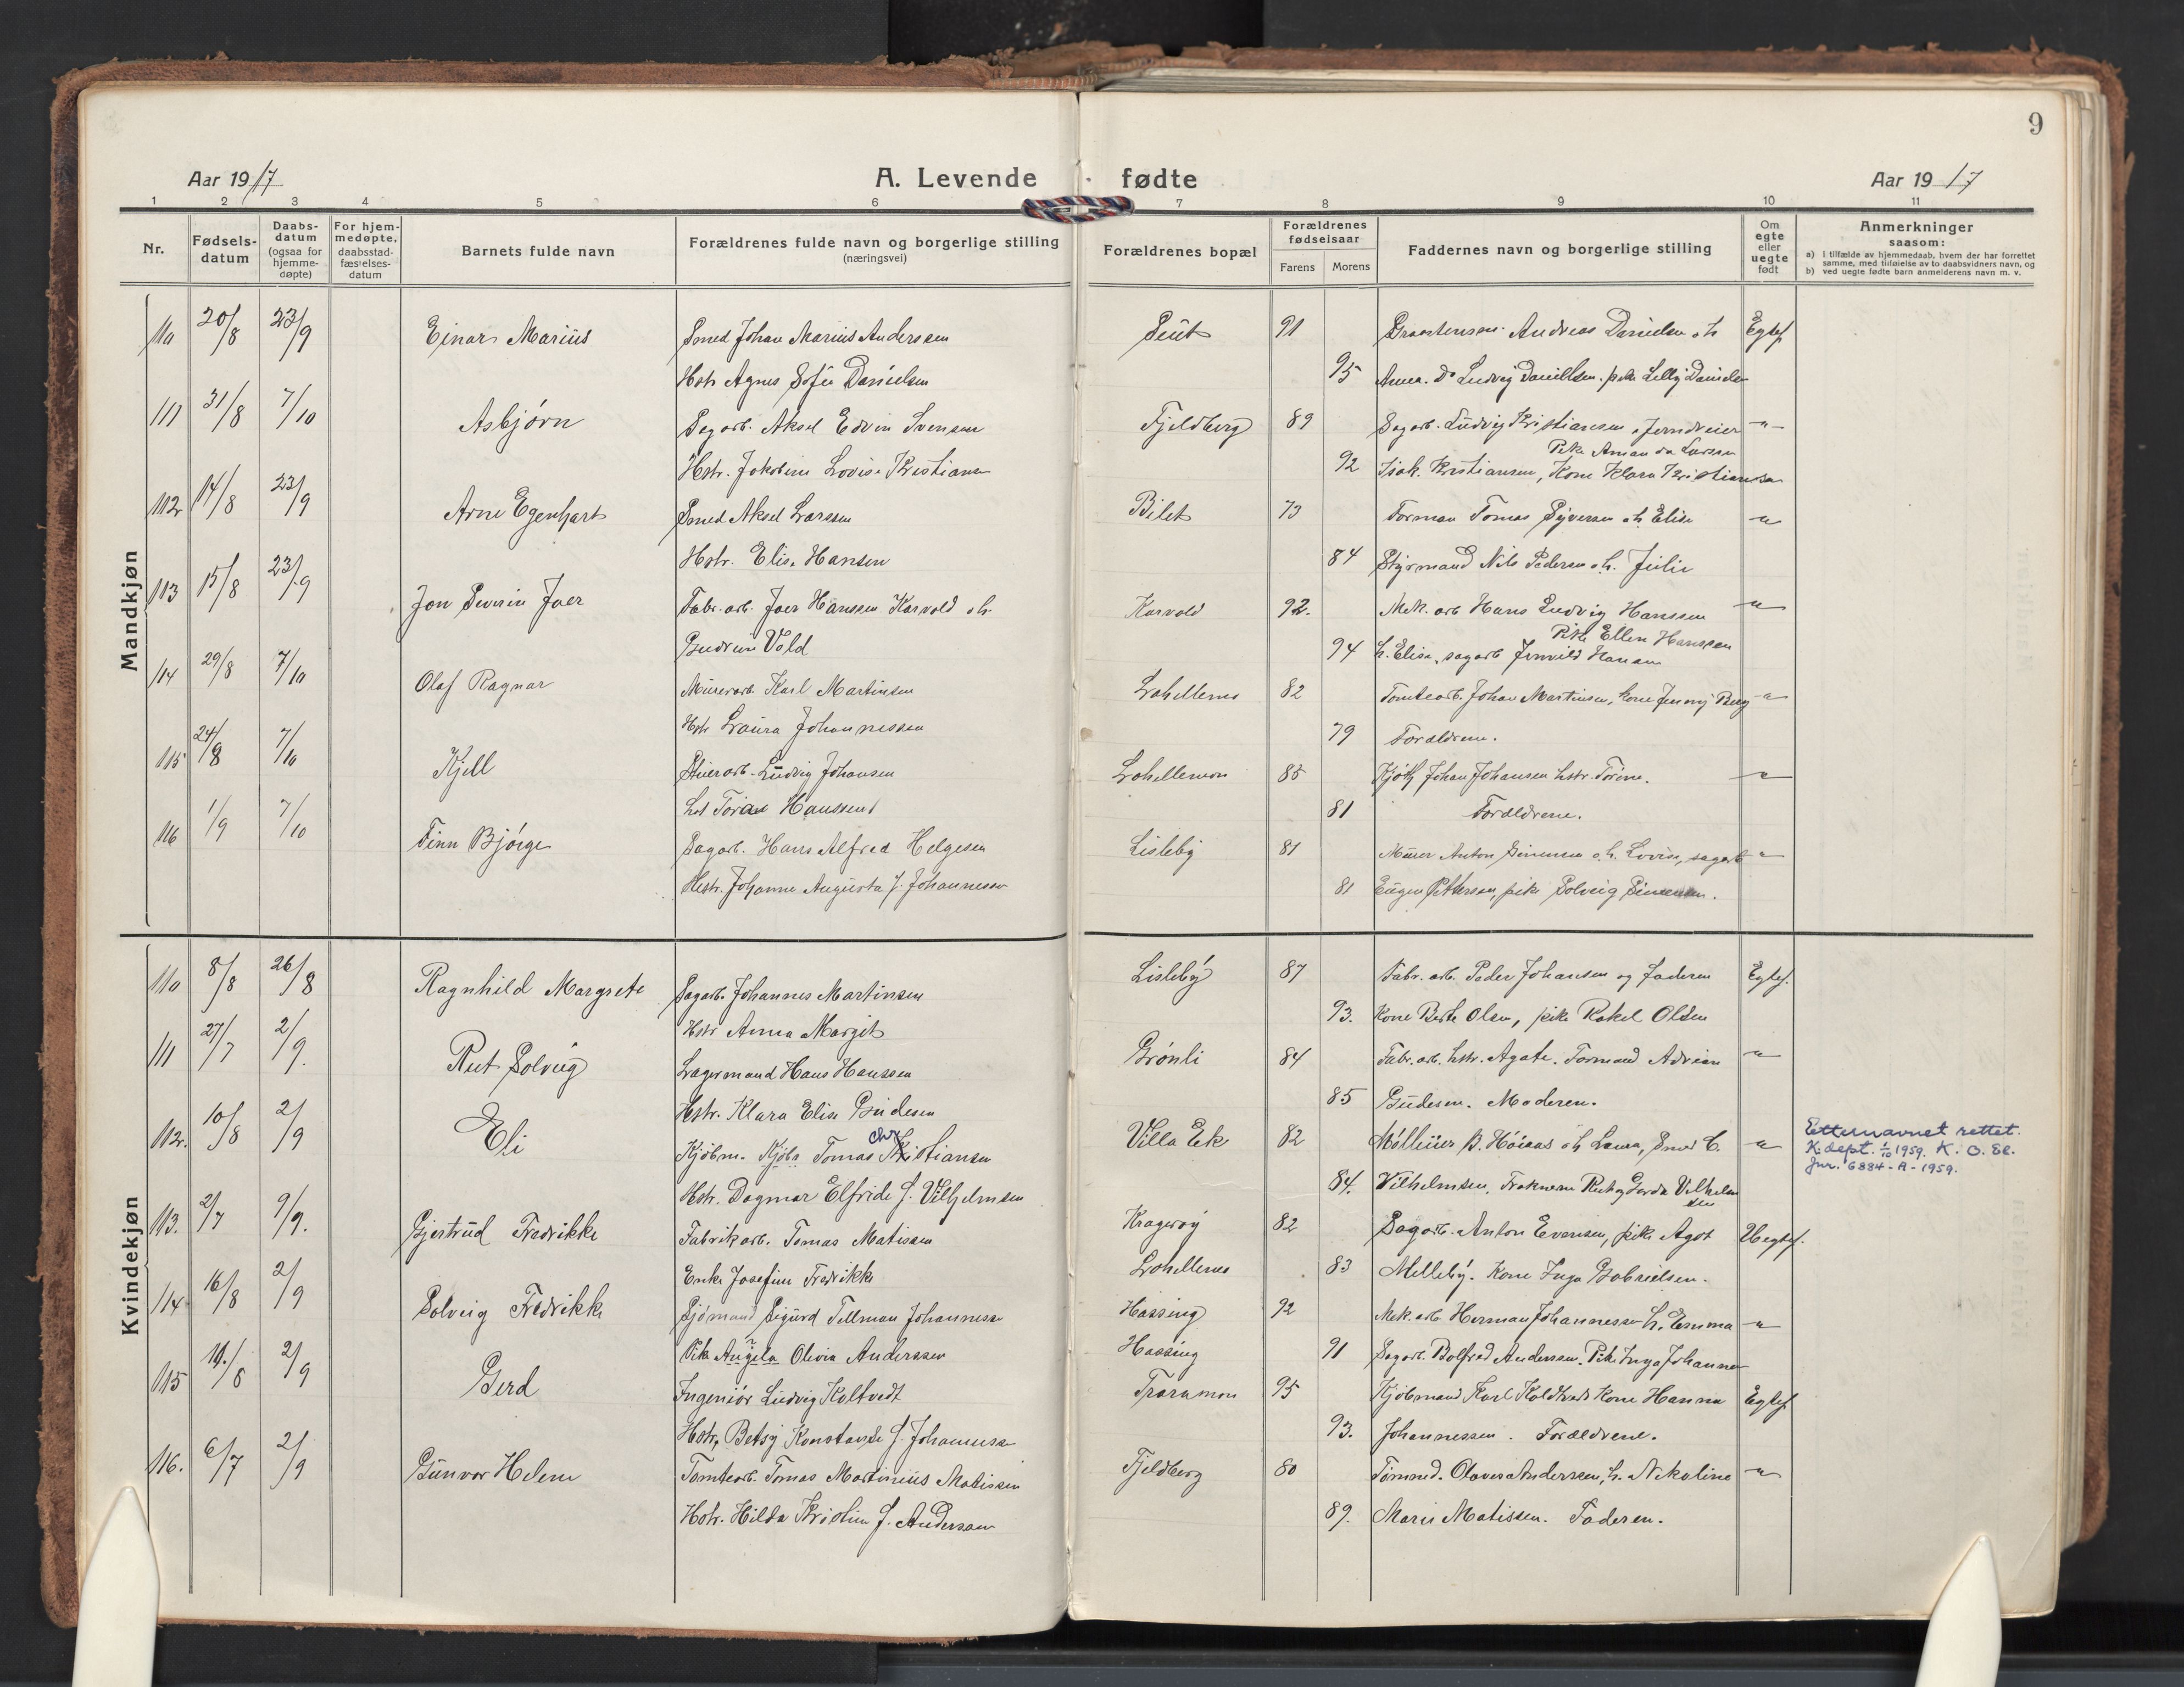 9
Aar 1917 A. Levende fødte Aar 1917
1 2 3 4 5 6 7 8 9 10 11
Nr. Fødsels-datum Daabs-datum (ogsaa for hjemme-døpte) For hjem-medøpte, daabsstad-fæstelses-datum Barnets fulde navn Forældrenes fulde navn og borgerlige stilling (næringsvei) Forældrenes bopæl Forældrenes fødselsaar Farens Morens Faddernes navn og borgerlige stilling Om egte eller uegte født Anmerkninger saasom:
a) i tilfælde av hjemmedaab, hvem der har forrettet samme, med tilføielse av to daabsvidners navn, og
b) ved uegte fødte barn anmelderens navn m. v.
Mandkjøn
110 20/8 23/9 Einar Marius Smed Johan Marius Anderssen 91 Andreas Danielsen o h Egtef.
Hstr Agnes Sofie Danielsen 95 Anna. Do Ludvig Daniellsen. pike Lelly Danielsen
111 31/8 7/10 Asbjørn Sagarb. Aksel Edvin Svensen Fjeldberg 89 Sagarb. Ludvig Kristiansen, Jerndreier -"-
Pike Amanda Larssen
Hstr. Jakobine Lovise Kristiansen 92 Isak Kristiansen, Kone Klara Kristiansen
112 14/8 23/9 Arne Egenhart Smed Aksel Larssen Bilet 73 Forman Tomas Syversen o h Elise -"-
Hstr. Elise Hansen 84 Styrmand Nils Pedersen o. h. Julie
113 15/8 23/9 Jon Severin Joer Fabr. arb. Joer Hanssen Karvold o h. Karvold 92. Mek. arb Hans Ludvig Hanssen -"-
Pike Ellen Hanssen
Gudrun Vold 94 h. Elise, sagarb
114 29/8 7/10 Olaf Ragnar Murerarb. Karl Martinsen Lahellemo 82 Tomtearb. Johan Martinsen, kone Jenny Berg -"-
Hstr Laura Johannessen 79 Forældrene.
115 24/8 7/10 Kjell Ludvig Johansen Lahellemon 85 Johan Johansen hstr. Torine. -"-
81 Forældrene.
116 1/9 7/10 Finn Bjørge Sagarb. Hans Alfred Helgesen Lisleby 81 Murer Anton Simensen o. h. Lovise, sagarb -"-
Hstr. Johanne Augusta f. Johannessen 81 Eugen Pettersen, pike Solveig Simensen.
Kvindekjøn
110 8/8 26/8 Ragnhild Margrete Sagarb. Johannes Martinsen Lisleby 87 Fabr. arb. Peder Johansen og faderen Egtef.
Hstr Anna Margit 93. Kone Berte Olsen, pike Rakel Olsen
111 27/7 2/9. Rut Solveig Lagermand Hans Hanssen Grønli 84 Fabr. arb. hstr. Agate. Formand Adrian -"-
Hstr. Klara Elise Gudesen 85 Gudesen. Moderen.
112. 10/8 2/9 Eli Kjøbm. Kjøbm Tomas Kristiansen Chr Villa Ek 82 Møller B. Høiaas o h Laura, Smed C. -"- Etternavnet rettet.
K. dept. 1/10 1959. K. O. Se.
Jnr. 6884-A-1959.
Hstr. Dagmar Elfride f. Vilhelmsen 84. Vilhelmsen, Frøknerne Rut og Gerda Vilhelmsen
113. 2/7 9/9. Gjertrud Fredrikke Fabrikarb. Tomas Matisen Kragerøy 82 Sagarb. Anton Evensen, pike Agot Uegtef.
Enke Josefine Fredrikke Lahellemo 83 Melleby. Kone Inga Gabrielsen.
114 16/8 2/9 Solveig Fredrikke Sjømand Sigurd Tellman Johannessen Hassing 92 Mek. arb Herman Johannessen h. Emma -"-
Pike Angela Olivia Anderssen Hassing 91 Sagarb. Bolfred Anderssen. Pike Inga Johannessen
115 2/9 Gerd Ingeniør Ludvig Koltvedt Traramon 95 Kjøbmand Karl Koldtvedt Kone Hanna Egtef.
Hstr. Betsy Konstanse f. Johannessen 93. Johannessen. Forældrene.
116. 6/7 2/9 Gunvor Helene Tomtearb. Tomas Martinius Matissen Fjeldberg 80 Tømmd. Olaves Anderssen, h. Nikoline -"-
Hstr. Hilda Kristine f. Anderssen 89. Marie Matissen. Faderen.